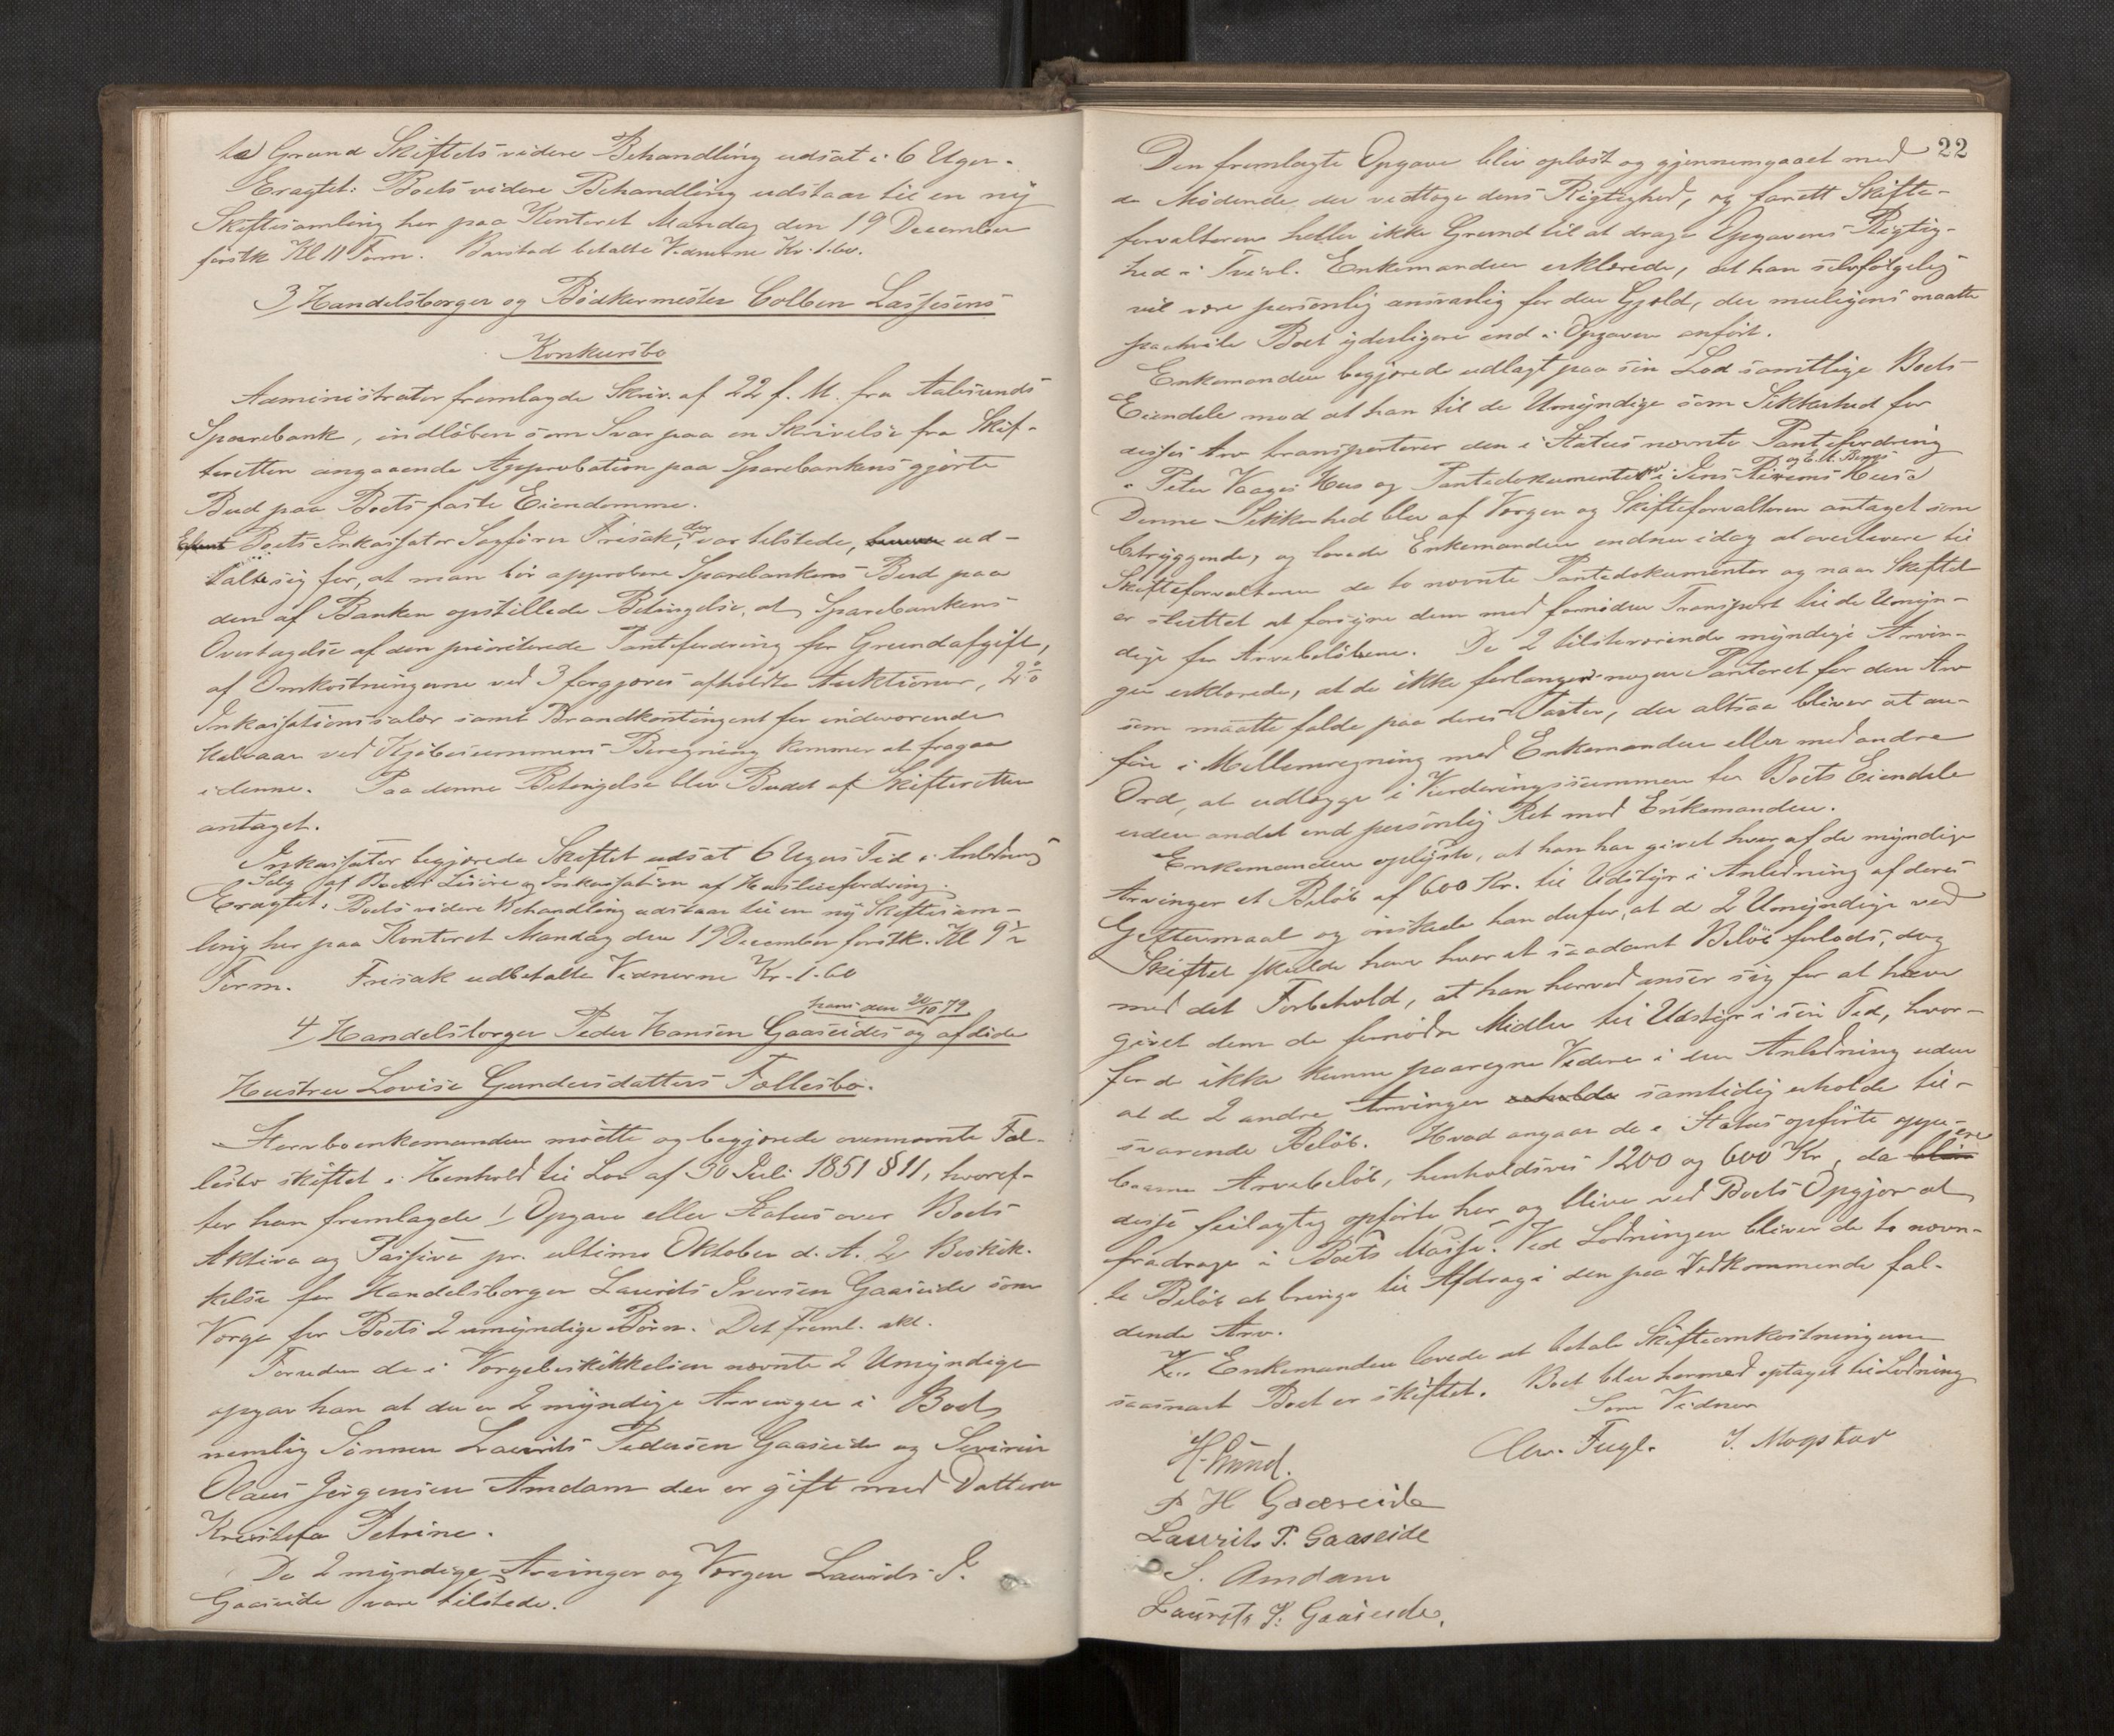 ted Grund Skiftets videre Behandling udsat i 6 Uger.
Eragtet: Boets videre Behandling udstaar til en ny
Skiftesamling her paa Kontoret Mandag den 19 December
førstk Kl 11 Form. Barstad betalte Vidnerne Kr. 1.60.
3/ Handelsborger og Bødkermester Colben Lassesens
Konkursbo
Administrator fremlagde Skriv. af 22 f. M. fra Aalesunds
Sparebank, indløben som Svar paa en Skrivelse fra Skif-
teretten angaaende Approbation paa Sparebankens gjorte
Bud paa Boets faste Eiendomme.
Boets Inkassator Sagfører Frisak, der var tilstede, ud-
talte sig for, at man bør approbere Sparebankens Bud paa
den af Banken opstillede Betingelse, at Sparebankens
Overtagelse af den prioriterede Pantefordring for Grundafgift,
af Omkostningerne ved 3 forgjæves afholdte Auktioner, 2%
Inkassationssalær samt Brandkontingent for indeværende
Halvaar ved Kjøbesummens Beregning kommer at fragaa
i denne. Paa denne Betingelse blev Budet af Skifteretten
antaget.
Inkassator begjærede Skiftet udsat 6 Ugers Tid i Anledning
Salg af Boets Løsøre og Inkassation af Huslieefordring.
Eragtet: Boets videre Behandling udstaar til en ny Skiftesam-
ling her paa Kontoret Mandag den 19 December førstk. Kl 9½
Form. Frisak udbetalte Vidnerne Kr. 1.60
hans den 20/10 79
4/ Handelsborger Peder Hansen Gaaseides og afdøde
Hustru Lovise Gundersdatters Fællesbo.
Stervboenkemanden mødte og begjærede ovennævnte Fæl-
lesbo skiftet i Henhold til Lov af 30 Juli 1851 § 11, hvoref-
ter han fremlagde 1/ Opgave eller Status over Boets
Aktiva og Passiva pr. ultimo Oktober d. A. 2/ Beskik-
kelse for Handelsborger Laurits Iversen Gaaseide som
Værge for Boets 2 umyndige Børn. Det freml. akt.
Foruden de i Værgebeskikkelsen nævnte 2 Umyndige
opgav han at der er 2 myndige Arvinger i Boet,
nemlig Sønnen Laurits Pedersen Gaaseide og Severin
Olaus Jørgensen Amdam der er gift med Datteren
Kristofa Petrine.
De 2 myndige Arvinger og Værgen Laurits I.
Gaaseide vare tilstede.
22
Den fremlagte Opgave blev oplæst og gjennemgaaet med
de Mødende der vedtoge dens Rigtighed, og fandt Skifte-
forvalteren heller ikke Grund til at drage Opgavens Rigtig-
hed i Tvivl. Enkemanden erklærede, at han selvfølgelig
vil være personlig ansvarlig for den Gjæld, der muligens maatte
paahvile Boet yderligere end i Opgaven anført.
Enkemanden begjærede udlagt paa sin Lod samtlige Boets
Eiendele mod at han til de Umyndige som Sikkerhed for
disses Arv transporterer den i Status nævnte Pantefordring
i Peter Vaages Hus og Pantedokumentet i Jens og E. A. Bergs Huse
Denne Sikkerhed blev af Værgen og Skifteforvalteren antaget som
betryggende, og lovede Enkemanden endnu idag at overlevere til
Skifteforvalteren de to nævnte Pantedokumenter og naar Skiftet
er sluttet at forsyne dem med fornøden Transport til de Umyn-
dige for Arvebeløbene. De 2 tilstedeværende myndige Arvin-
ger erklærede, at de ikke forlanger nogen Panteret for den Arv
som maatte falde paa deres Parter, der altsaa bliver at an-
føre i Mellemregning med Enkemanden eller med andre
Ord, at udlægge i Vurderingssummen for Boets Eiendele
uden andet end personlig Ret mod Enkemanden.
Enkemanden oplyste, at han har givet hver af de myndige
Arvinger et Beløb af 600 Kr. til Udstyr i Anledning af deres
Giftermaal og ønskede han derfor, at de 2 Umyndige ved
Skiftet skulde have hver et saadant Beløb forlods, dog
med det Forbehold, at han herved anser sig for at have
givet dem de fornødne Midler til Udstyr i sin Tid, hvor-
for de ikke kunne paaregne Videre i den Anledning uden
at de 2 andre Arvinger erholde samtidig erholde til-
svarende Beløb. Hvad angaar de i Status opførte oppe-
baarne Arvebeløb, henholdsvis 1200 og 600 Kr, da ere
disse feilagtig opførte her og blive ved Boets Opgjør at
fradrage i Boets Masse. Ved Lodningen bliver de to nævn-
te Beløb at bringe til Afdrag i den paa Vedkommende fal-
dende Arv.
Enkemanden lovede at betale Skifteomkostningerne
saasnart Boet er skiftet. Boet blev hermed optaget til Lodning
Som Vidner
H. Lund. Chr. Fugl. I. Mogstad
P H Gaaseide
Laurits P. Gaaseide
S. Amdam
Laurits I. Gaaseide.